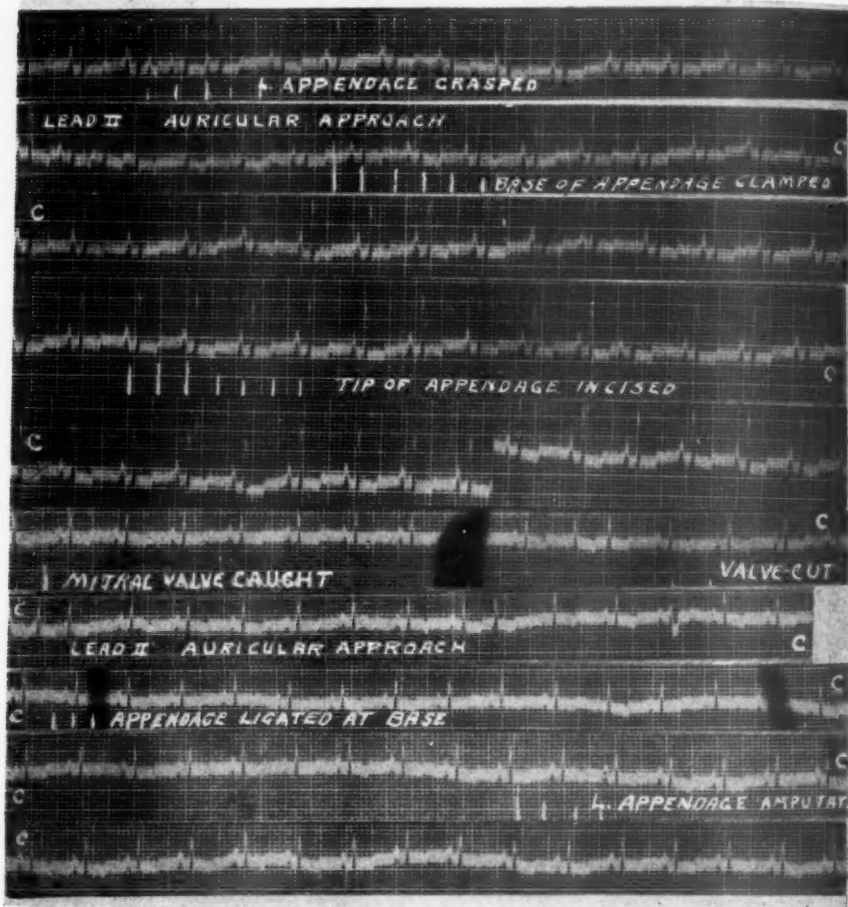 L. APPENDAGE GRASPED
LEAD II AURICULAR APPROACH
C
BASE OF APPENDAGE CLAMPED
C
C
TIP OF APPENDAGE INCISED
C
C
MITRAL VALVE CAUGHT
VALVE-CUT
C
LEAD II AURICULAR APPROACH
C
C
C
APPENDAGE LIGATED AT BASE
C
C
L. APPENDAGE AMPUTAT.
C